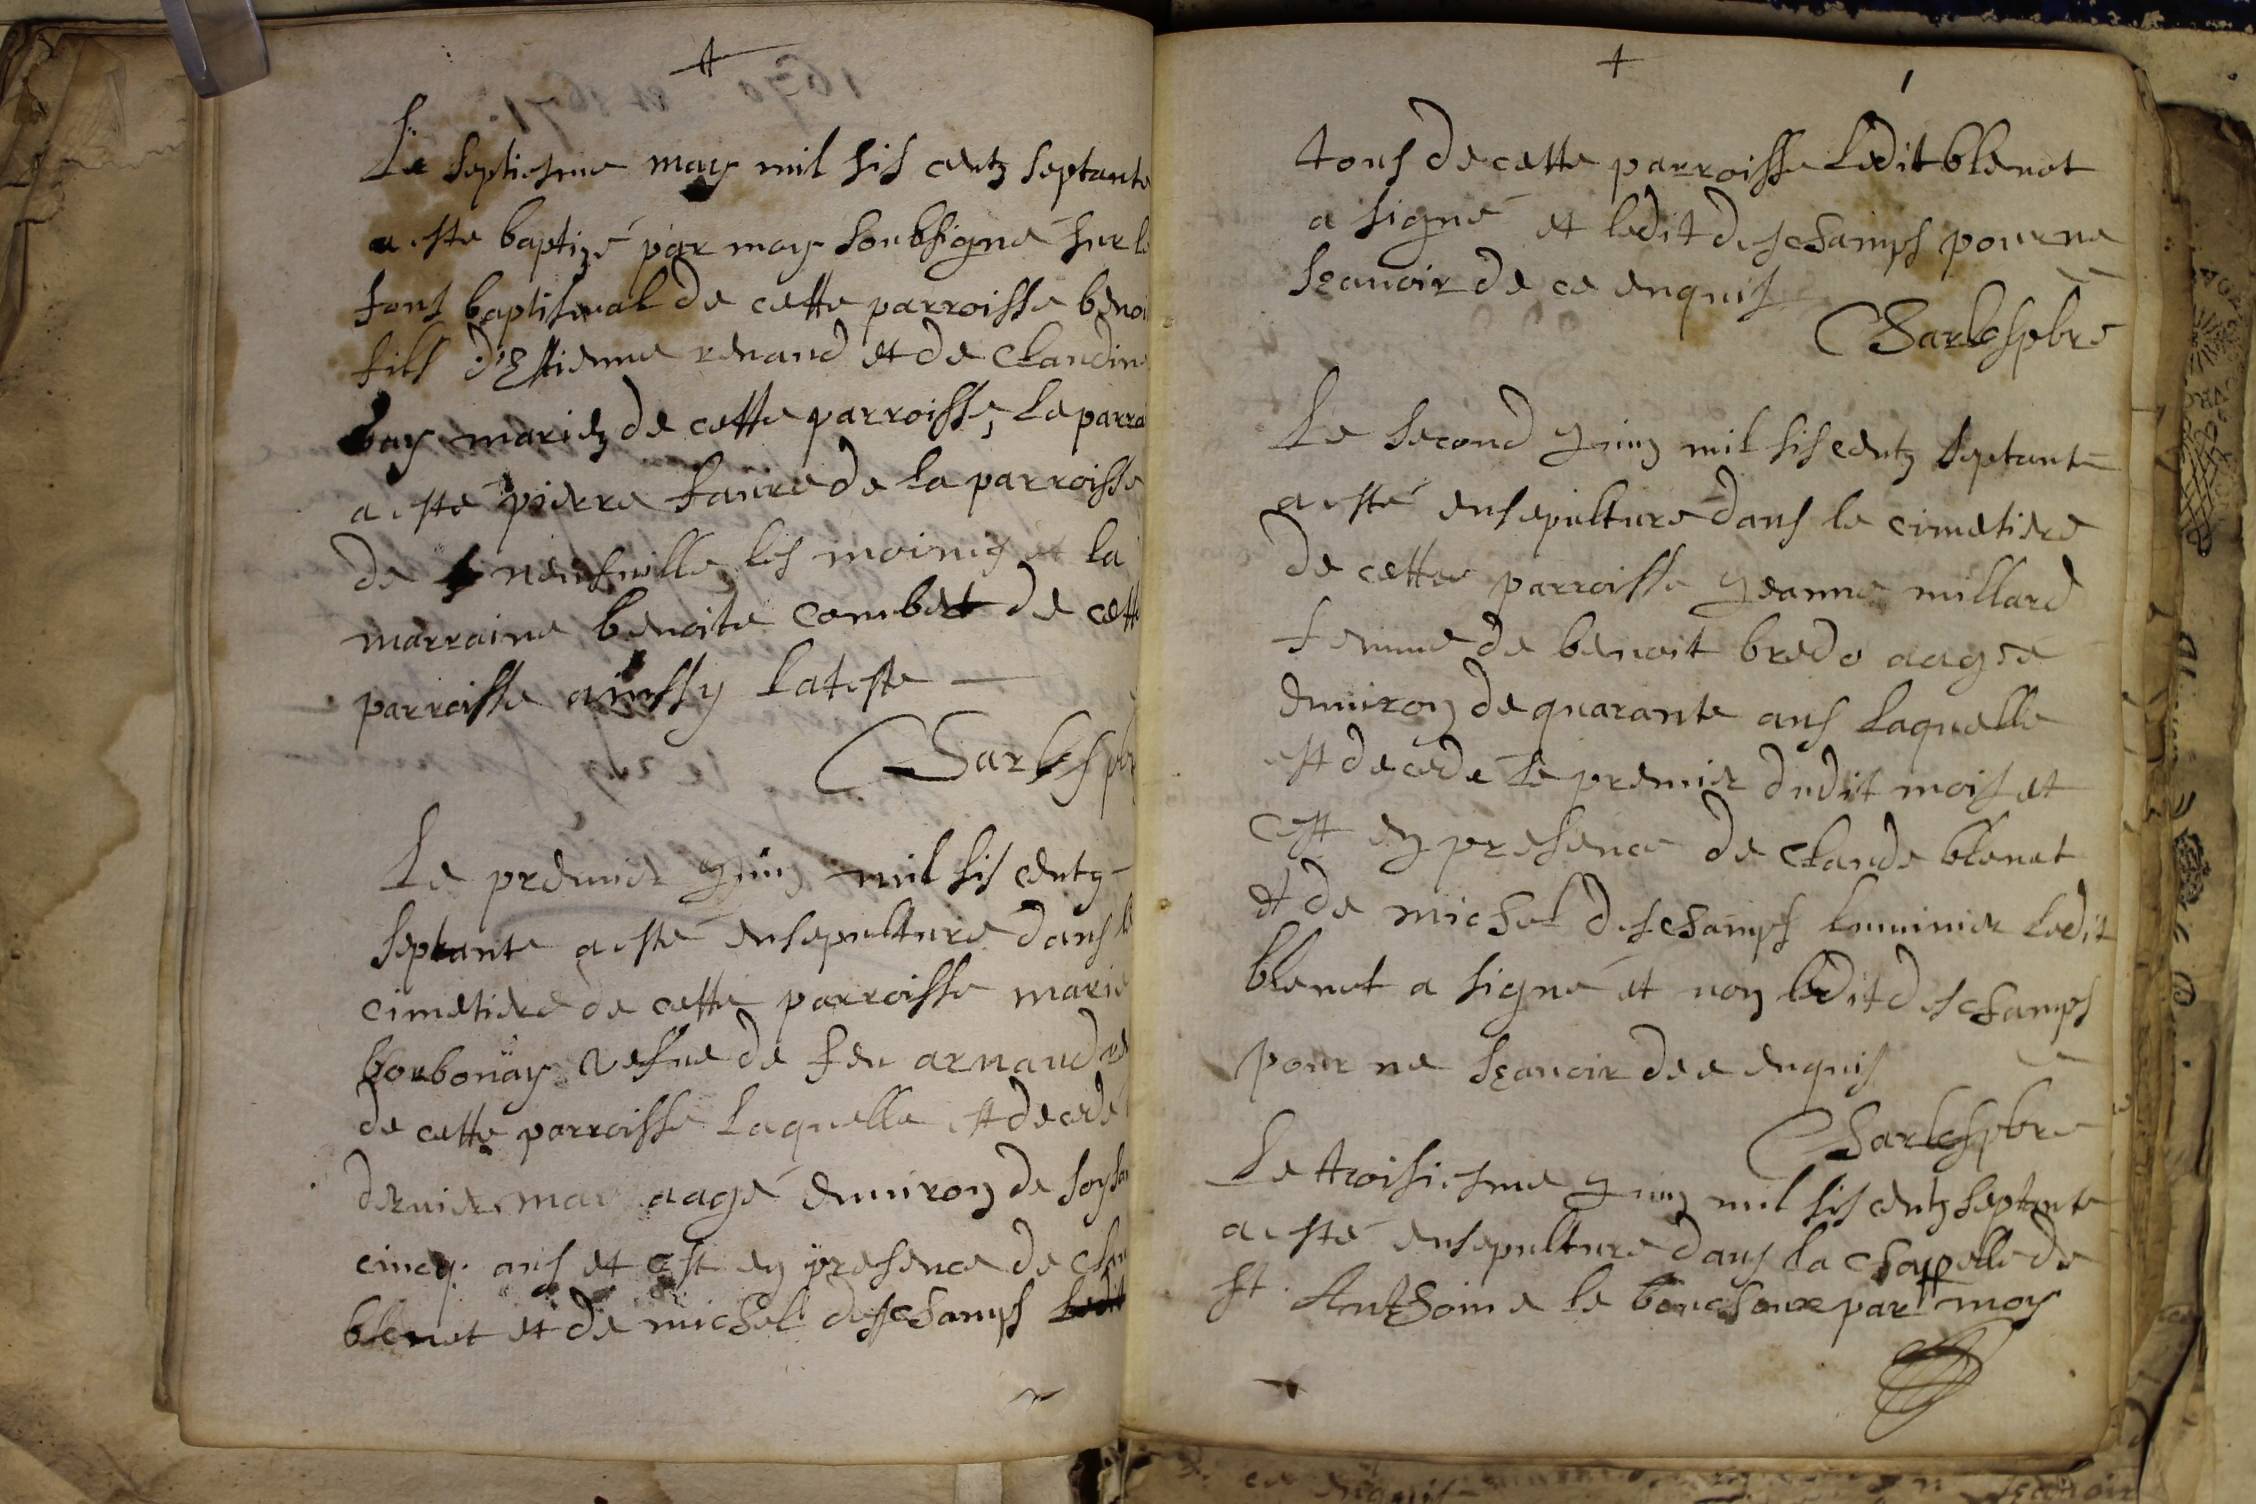 Le septiesme may mil sis centz septante
a este baptizé par moy soubsigné sur le
fons baptismal de cette parroisse benoi
fils d'Estienne renaud et de Claudine
bay mariez de cette parroisse, le parra
a esté pierre faure de la parroisse
de neufville les moinnes et la
marraine benoite combet de cette
parroisse ainssy lateste
Charles pbr
Le premier juing mil sis centz
septante a esté ensepulturé dans le
cimetiere de cette parroisse marie
borbonay vefue de feu arnaud
de cette parroisse laquelle est decede
dernier may aagé enuiron de soysan
cincq ans et cest en presence de Clau
blenet et de michel deschamps ledit
tous de cette parroisse ledit blenet
a signé et ledit deschamps pour ne
sçauoir de ce enquis
Charles pbre
Le second juing mil sis centz septante
a esté ensepulturé dans le cimetiere
de cette parroisse jeanne millard
femme de benoit bredo aagée
enuiron de quarante ans laquelle
est decede le premier dudit mois et
cest en presence de Claude blenet
et de michel deschamps luminier ledit
blenet a signé et non ledit deschamps
pour ne sçauoir de ce enquis
Charles pbre
Le troisiesme juing mil sis centz septante
a esté ensepulturé dans la chappelle de
st. Anthoine le bouchoux par moy